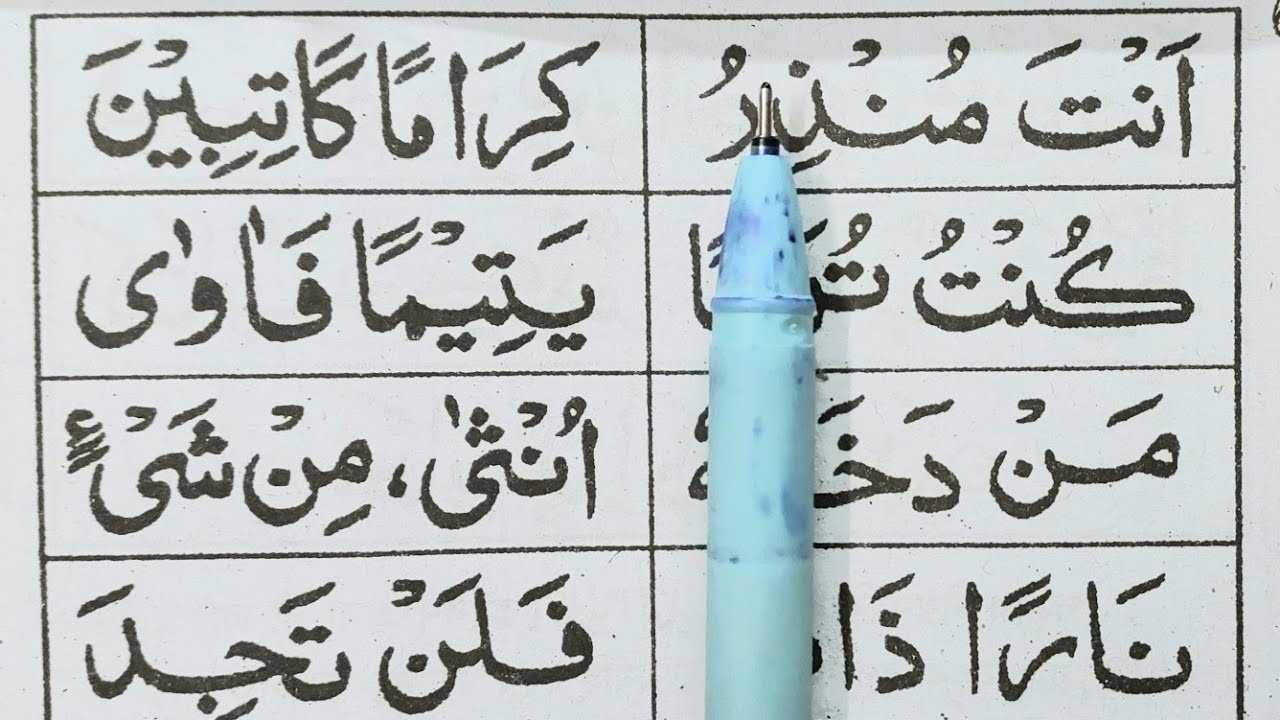 اَنْتَ مُنْذِرُ كِرَامًا كَاتِبِيْنَ
كُنْتُ يَتِيْمًا فَاٰوٰى
مَنْ اُنْثٰى، مِنْ شَىْءٍ
نَارًا فَلَنْ تَجِدَ